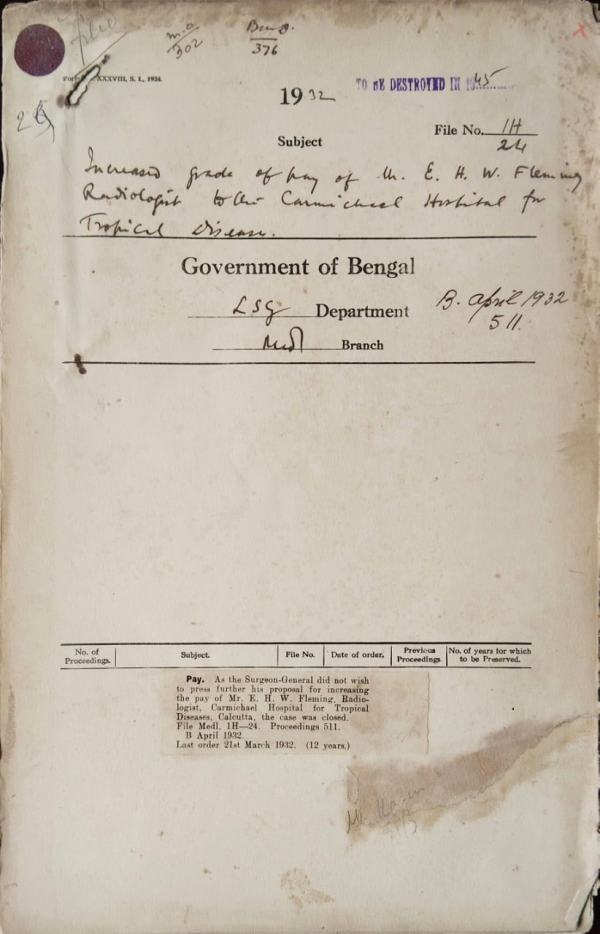 m.a
302
376
XXXVIII, S. I., 1924.
1932
TO BE DESTROYED IN 1945
File No. 1H
24
Subject
Increased grade of pay of Mr. E. H. W. Fleming
Radiologist to the Carmichael Hospital for
Tropical disease.
Government of Bengal
LSG Department
B. April 1932
511.
Medl Branch
No. of Proceedings. Subject. File No. Date of order. Previous Proceedings. No. of years for which to be Preserved.
Pay. As the Surgeon-General did not wish
to press further his proposal for increasing
the pay of Mr. E. H. W. Fleming, Radio-
logist, Carmichael Hospital for Tropical
Diseases, Calcutta, the case was closed.
File Medl, 1H—24. Proceedings 511.
B April 1932.
Last order 21st March 1932. (12 years.)